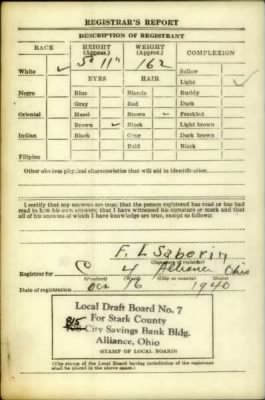 REGISTRAR'S REPORT
DESCRIPTION OF REGISTRANT
RACE HEIGHT (Approx.) WEIGHT (Approx.) COMPLEXION
5' 11" 162
White ✓ Sallow
EYES HAIR Light ✓
Negro Blue Blonde Ruddy
Gray Red Dark
Oriental Hazel Brown ✓ Freckled
Brown ✓ Black Light brown
Indian Black Gray Dark brown
Bald Black
Filipino
Other obvious physical characteristics that will aid in identification
I certify that my answers are true; that the person registered has read or has had
read to him his own answers; that I have witnessed his signature or mark and that
all of his answers of which I have knowledge are true, except as follows:
F. L. Saberin
(Signature of registrar)
Registrar for C 4 Alliance Ohio
(Precinct) (Ward) (City or county) (State)
Date of registration Oct 16 1940
Local Draft Board No. 7
For Stark County
815 City Savings Bank Bldg.
Alliance, Ohio
(STAMP OF LOCAL BOARD)
(The stamp of the Local Board having jurisdiction of the registrant
shall be placed in the above space.)